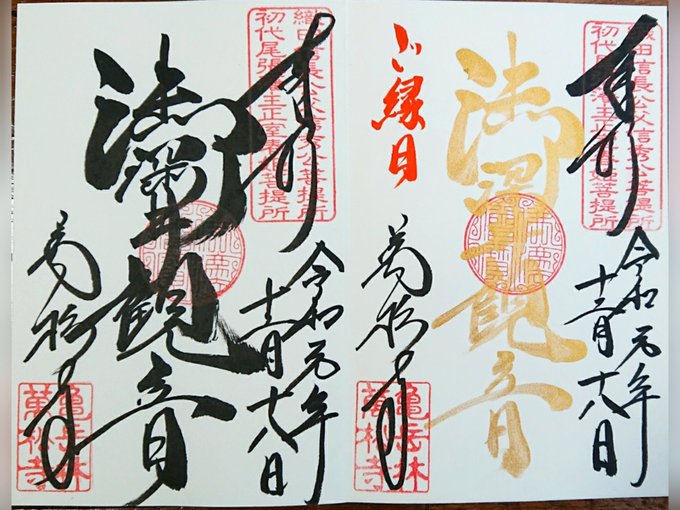 織田信長公父信秀公菩提所
初代尾張藩主正室春姫菩提所
奉拝
令和元年
十二月十八日
御深井観音
ご縁日
萬松寺
亀岳林
萬松寺
織田信長公父信秀公菩提所
初代尾張藩主正室春姫菩提所
奉拝
令和元年
十二月十八日
御深井観音
萬松寺
亀岳林
萬松寺